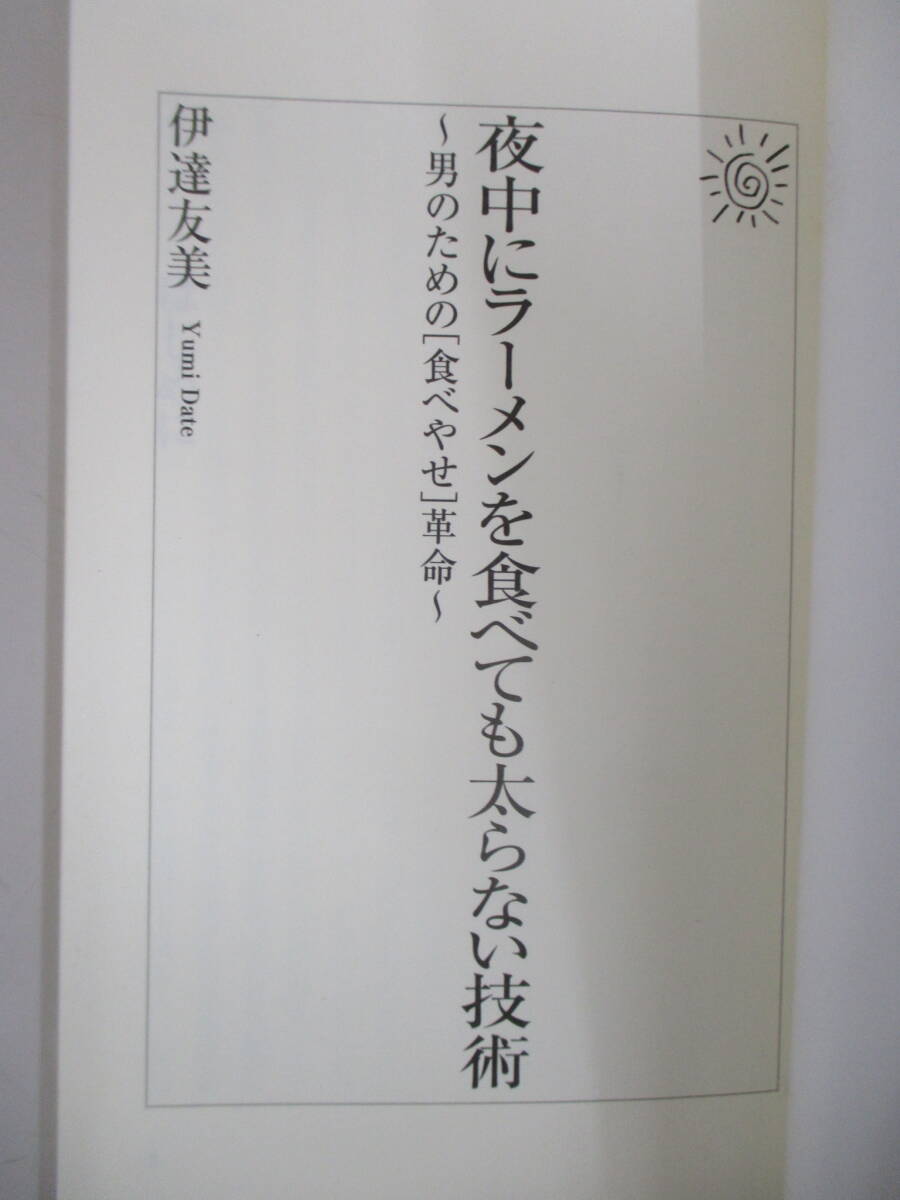 夜中にラーメンを食べても太らない技術
～男のための[食べやせ]革命～
伊達友美 Yumi Date